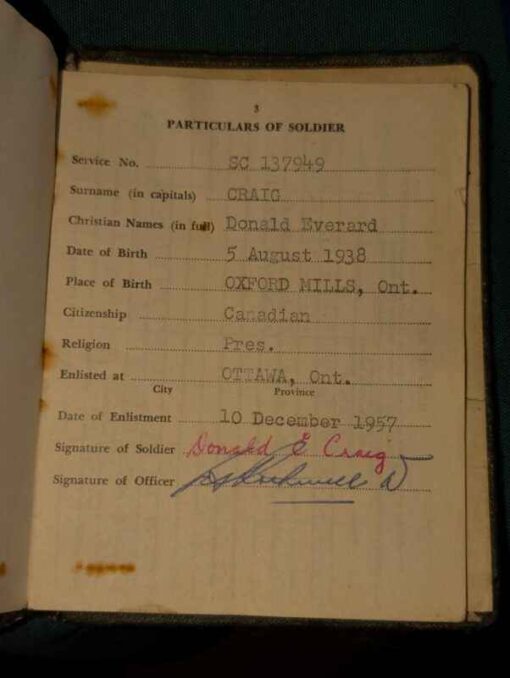 3
PARTICULARS OF SOLDIER
Service No. SC 137949
Surname (in capitals) CRAIG
Christian Names (in full) Donald Everard
Date of Birth 5 August 1938
Place of Birth OXFORD MILLS, Ont.
Citizenship Canadian
Religion Pres.
Enlisted at OTTAWA, Ont.
City Province
Date of Enlistment 10 December 1957
Signature of Soldier Donald E Craig
Signature of Officer